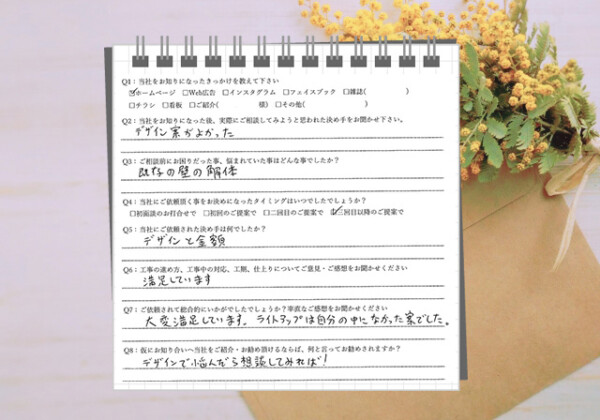 Q1：当社をお知りになったきっかけを教えて下さい
☑ホームページ □Web広告 □インスタグラム □フェイスブック □雑誌( )
□チラシ □看板 □ご紹介( 様) □その他( )
Q2：当社をお知りになった後、実際にご相談してみようと思われた決め手をお聞かせ下さい。
デザイン案がよかった
Q3：ご相談前にお困りだった事、悩まれていた事はどんな事でしたか？
既存の壁の解体
Q4：当社にご依頼頂く事をお決めになったタイミングはいつでしたでしょうか？
□初面談のお打合せで □初回のご提案で □二回目のご提案で ☑三回目以降のご提案で
Q5：当社にご依頼された決め手は何でしたか？
デザインと金額
Q6：工事の進め方、工事中の対応、工期、仕上りについてご意見・ご感想をお聞かせください
満足しています
Q7：ご依頼されて総合的にいかがでしたでしょうか？率直なご感想をお聞かせください
大変満足しています。ライトアップは自分の中になかった案でした。
Q8：仮にお知り合いへ当社をご紹介・お勧め頂けるならば、何と言ってお勧めされますか？
デザインで悩んだら相談してみれば！